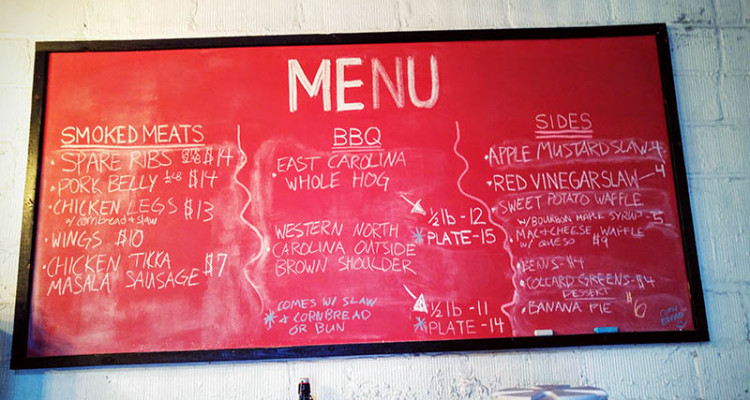 MENU
SMOKED MEATS
• SPARE RIBS $14
• PORK BELLY $14
• CHICKEN LEGS $13
w/ cornbread + slaw
• WINGS $10
• CHICKEN TIKKA
MASALA SAUSAGE $7
BBQ
• EAST CAROLINA
WHOLE HOG
½ lb - 12
* PLATE - 15
WESTERN NORTH
• CAROLINA OUTSIDE
BROWN SHOULDER
½ lb - 11
* PLATE - 14
* COMES W/ SLAW
& CORNBREAD
OR BUN
SIDES
• APPLE MUSTARD SLAW - 4
• RED VINEGAR SLAW - 4
• SWEET POTATO WAFFLE
W/ BOURBON MAPLE SYRUP - 5
• MAC + CHEESE WAFFLE
W/ QUESO $9
• BEANS - $4
• COLLARD GREENS - $4
DESSERT
• BANANA PIE $6